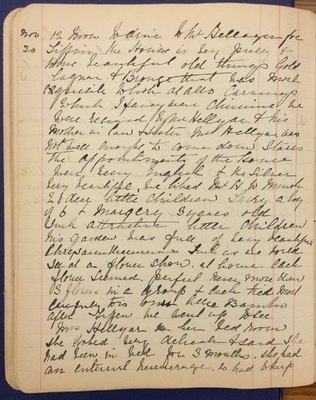 Nov 12 Noon to dine to Mr Hellagan for
20 Tiffin, the House is very pretty &
some beautiful old things Gold
Laquer & Bronze that was most
Exquisite Work also Carvings
Which I fancy were Chinese we
were received by Mr Hellyar & his
Mother in law & Sister Mrs Hellyar was
not well enough to come down stairs
the appointments of the House
were very English & the Silver
very beautiful we liked Mr H so much
2 dear little children a boy
of 6 & Margery 3 years old
such attractive little Children
his garden was full of very beautiful
Chrysanthemums such as we would
see at a Flower Show at home Each
Flower seemed perfect never more than
13 flowers in a group & each tied most
carefully to little Bamboo
after Tiffin we went up to see
Mrs Hellyar in her Bed room
she looked very delicate & said she
had been in bed for 3 months. she had
an internal hemorrhage & had to keep